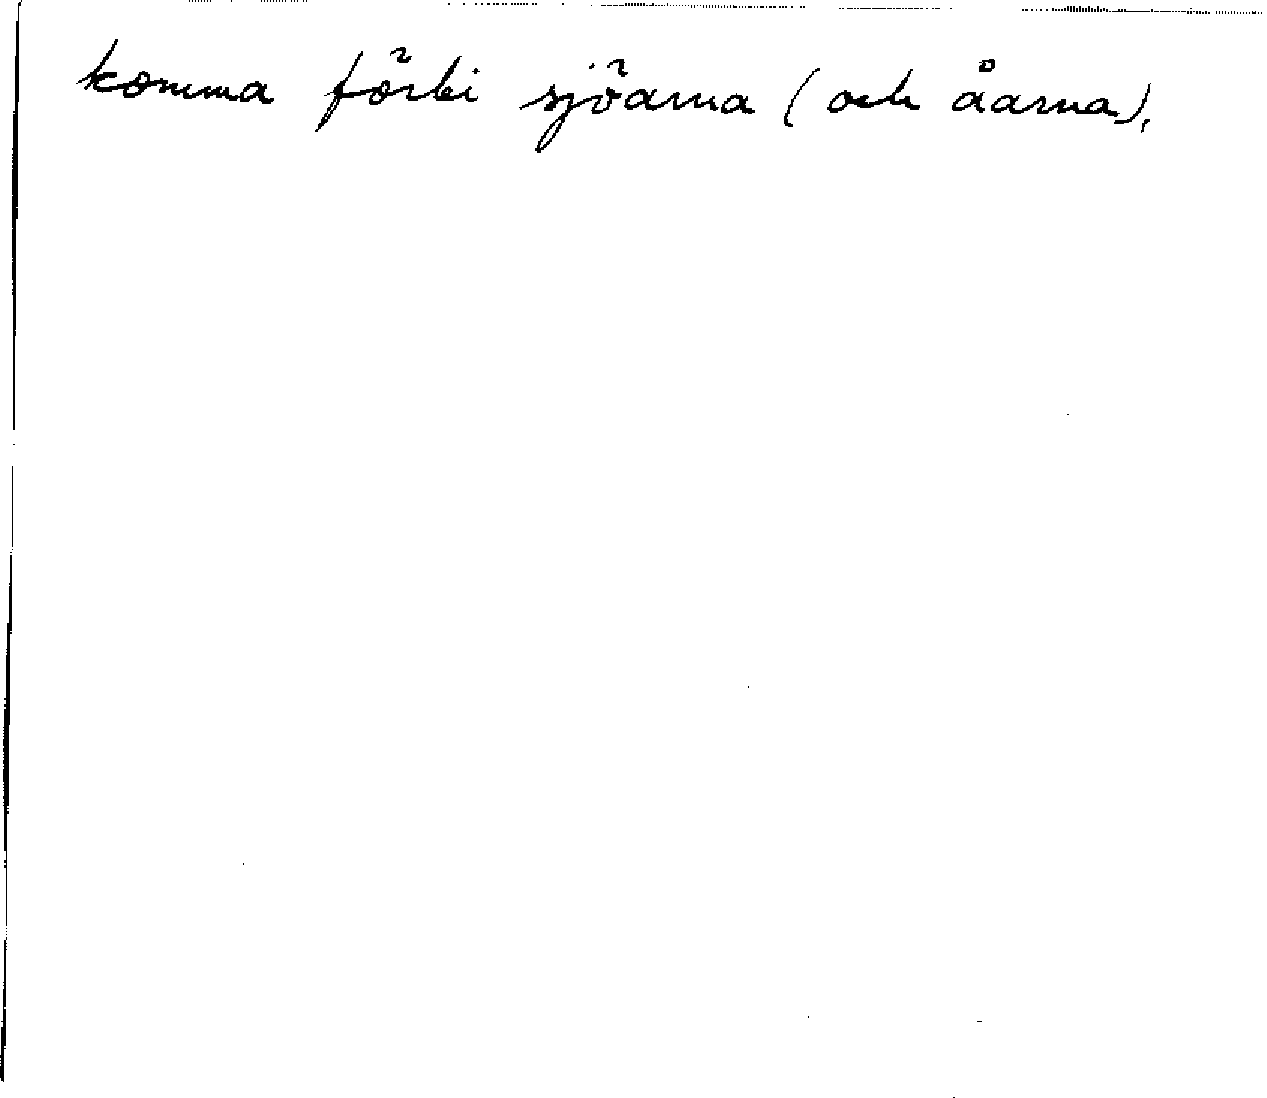 komma förbi sjöarna (och åarna),